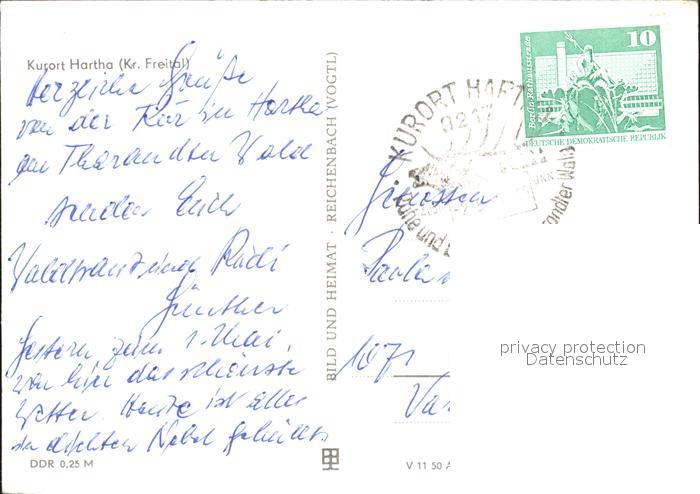 Kurort Hartha (Kr. Freital)
Herzliche Grüße
von der Kur in Hartha
am Tharandter Wald
senden Euch
Waltraut und Rudi
Günther
Gestern zum 1. Mai,
war hier das schönste
Wetter. Heute ist alles
in dichten Nebel gehüllt
DDR 0,25 M
BILD UND HEIMAT · REICHENBACH (VOGTL)
V 11 50 A
KURORT HART
8217
andter Wald
10
Berlin, Rathausstraße
DEUTSCHE DEMOKRATISCHE REPUBLIK
Genossen
Paula
1071
privacy protection
Datenschutz